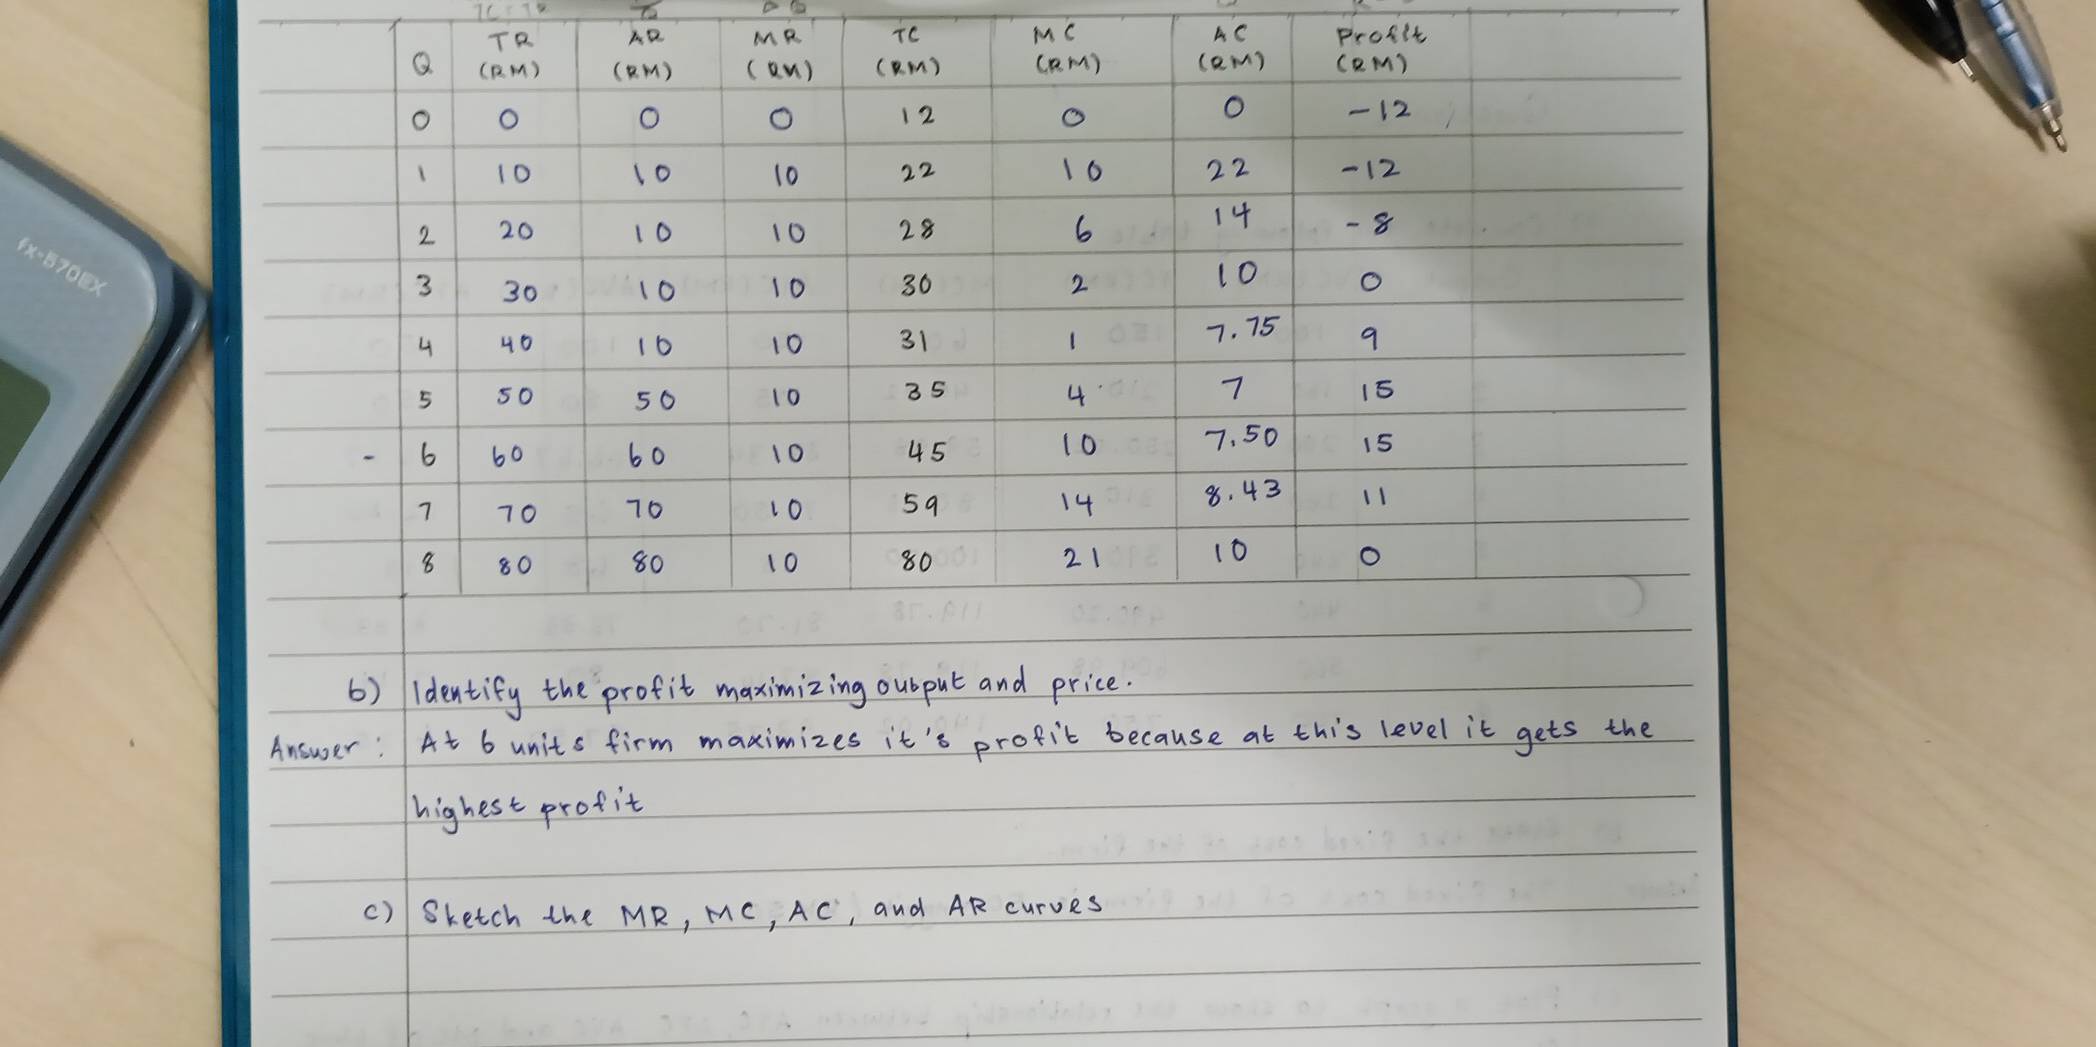 TR AR MR TC MC AC Profit
Q (RM) (RM) (RM) (RM) (RM) (RM) (RM)
0 0 0 0 12 0 0 -12
1 10 10 10 22 10 22 -12
2 20 10 10 28 6 14 -8
3 30 10 10 30 2 10 0
4 40 10 10 31 1 7.75 9
5 50 50 10 35 4 7 15
- 6 60 60 10 45 10 7.50 15
7 70 70 10 59 14 8.43 11
8 80 80 10 80 21 10 0
b) Identify the profit maximizing output and price.
Answer: At 6 units firm maximizes it's profit because at this level it gets the
highest profit
c) Sketch the MR, MC, AC, and AR curves
fx-570EX